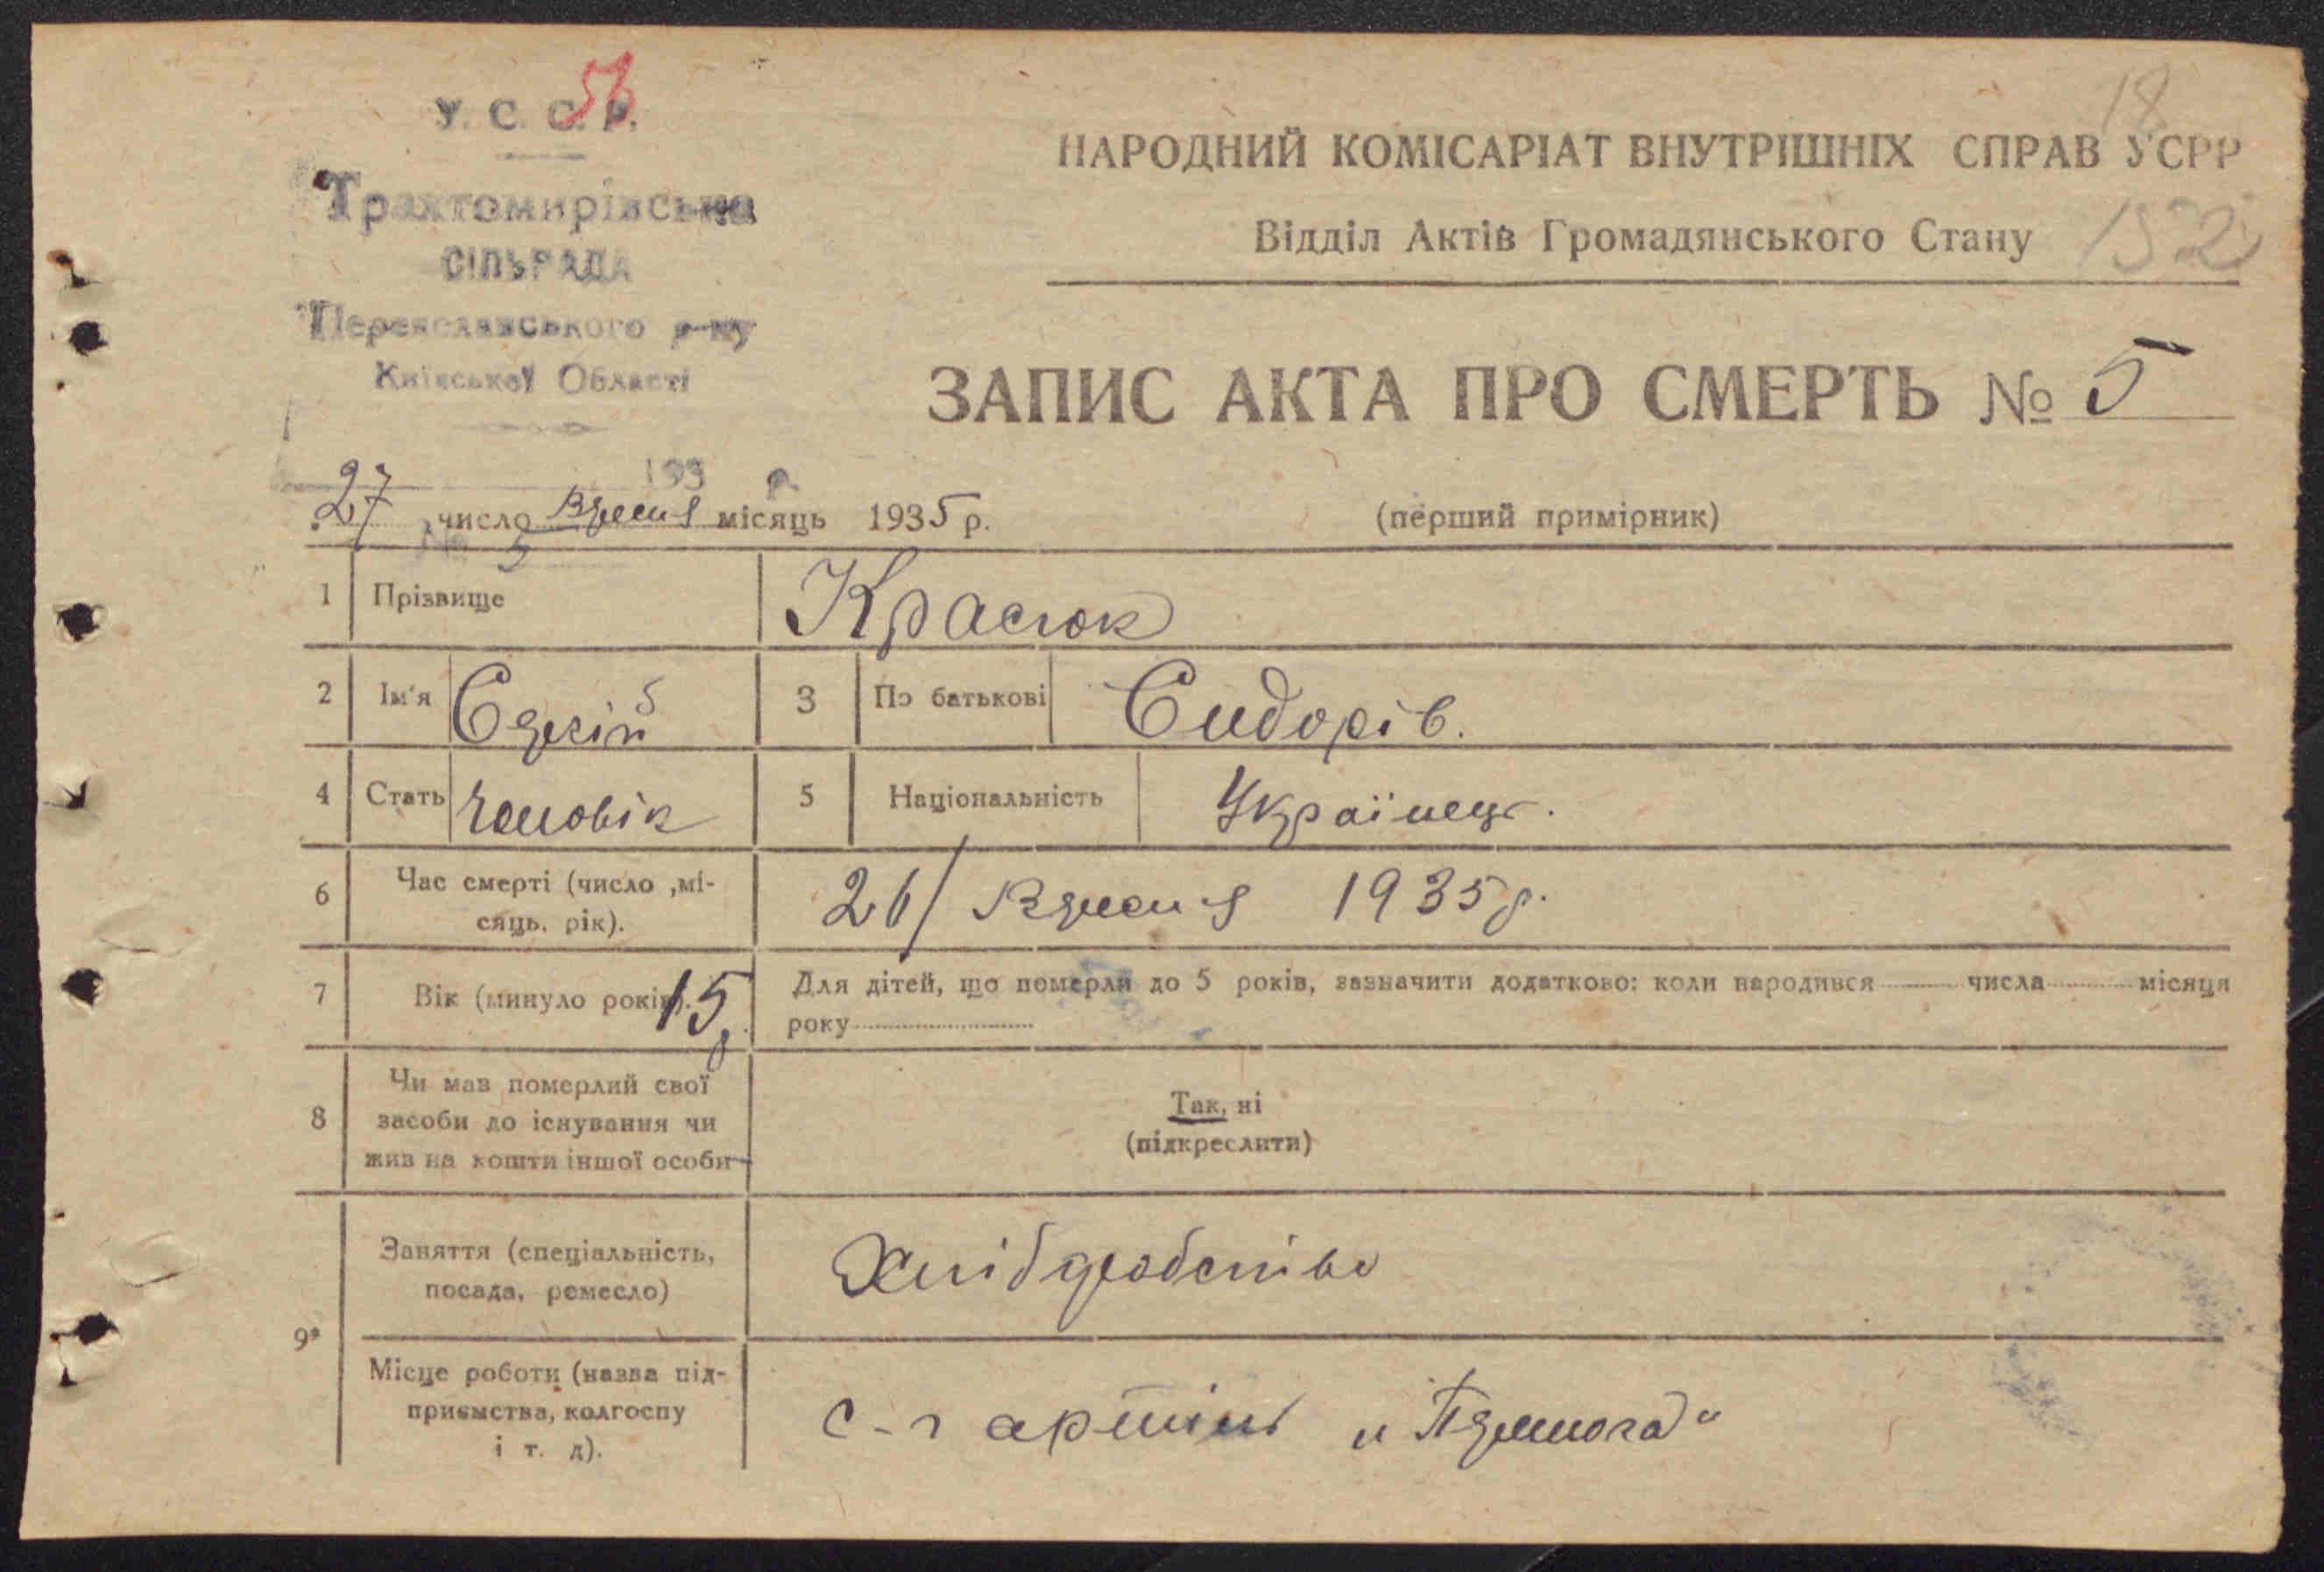 56
У. С. С. Р.
Трахтомирівська
СІЛЬРАДА
Переяславського р-ну
Київської Області
18
НАРОДНИЙ КОМІСАРІАТ ВНУТРІШНІХ СПРАВ УСРР
Відділ Актів Громадянського Стану 152
ЗАПИС АКТА ПРО СМЕРТЬ № 5
193 р.
27 число Вресня місяць 1935 р. (перший примірник)
№ 5
1 Прізвище Красюк
2 Ім'я Сергій 3 По батькові Сидорів.
4 Стать Чоловік 5 Національність Українець.
6 Час смерті (число ,мі-
сяць, рік). 26/ Вресня 1935 р.
7 Вік (минуло років). 15 р. Для дітей, що померли до 5 років, зазначити додатково: коли народився числа місяця
року
8 Чи мав померлий свої
засоби до існування чи
жив на кошти іншої особи
Так, ні
(підкреслити)
9*
Заняття (спеціальність,
посада, ремесло) Хлібробство
Місце роботи (назва під-
приємства, колгоспу
і т. д).
с-г артіль „Перемога"